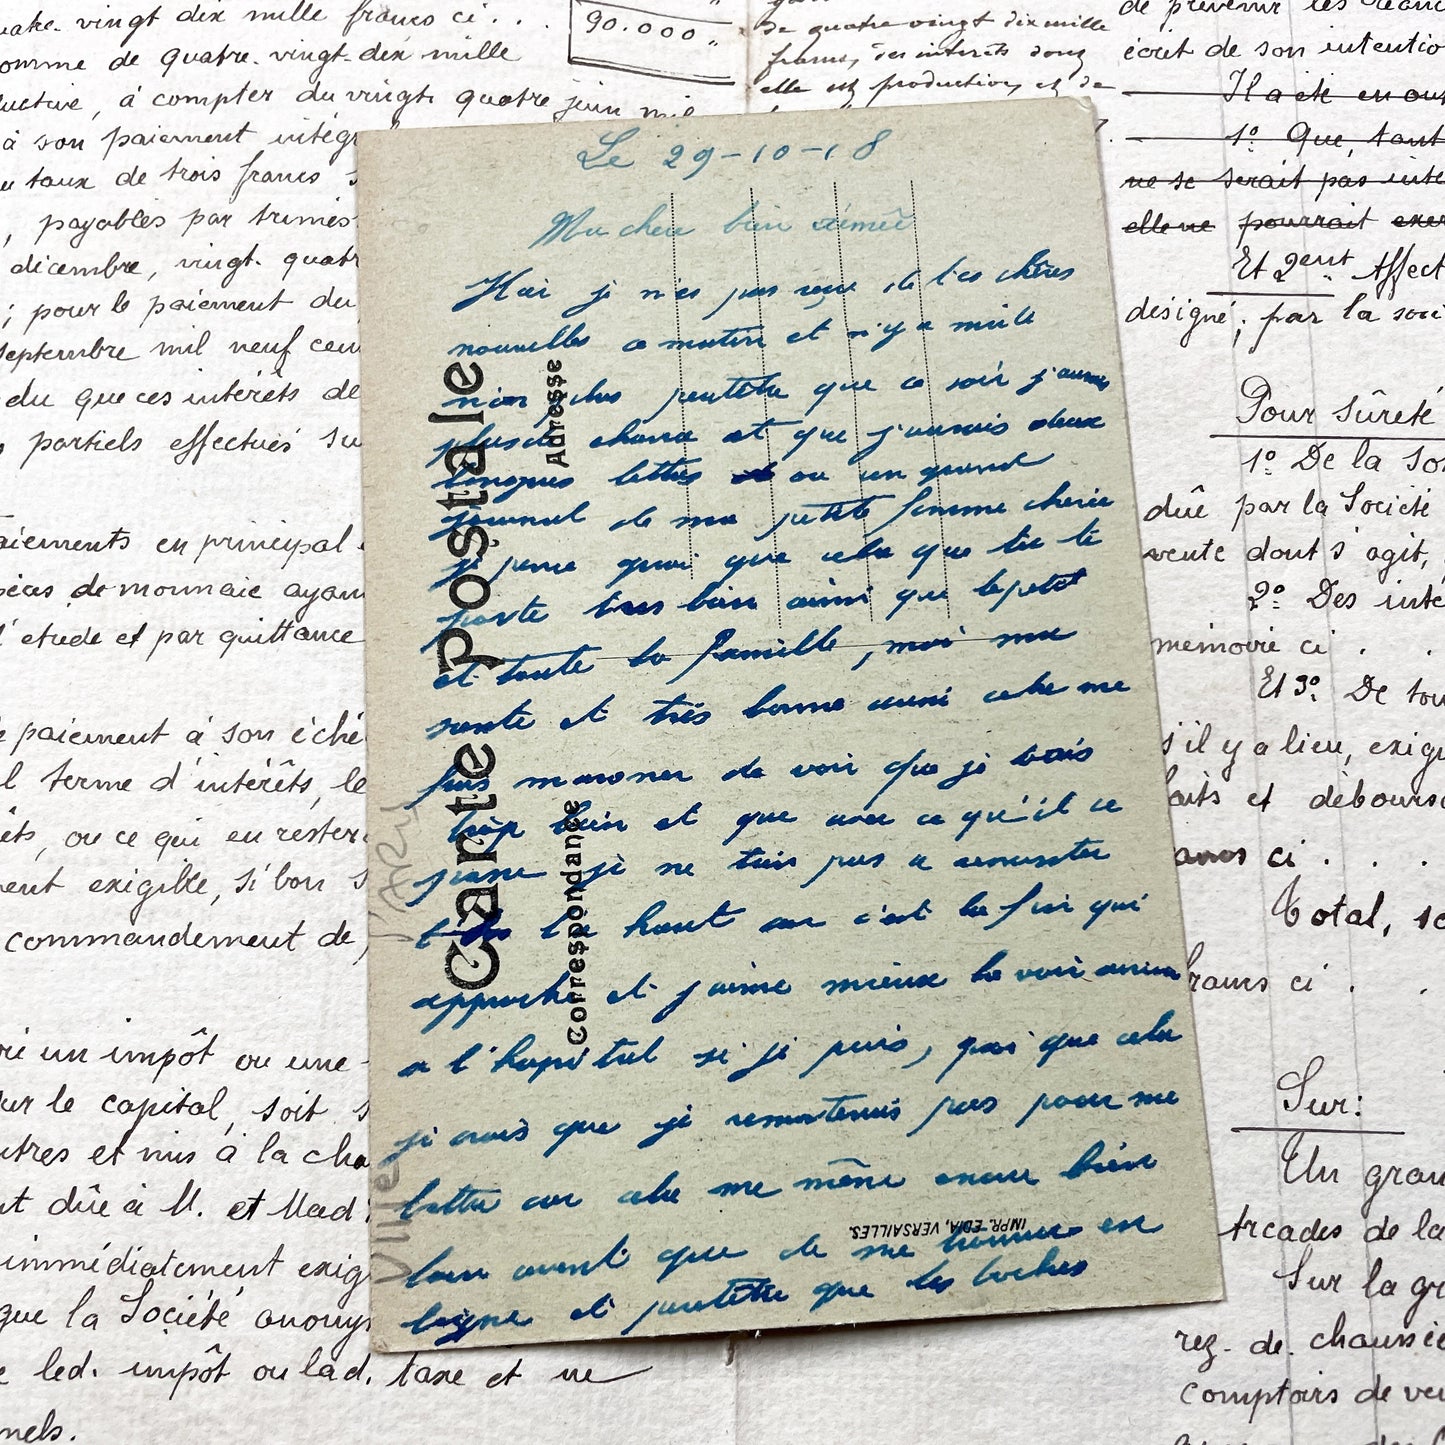 quatre vingt dix mille francs ci . . .
somme de quatre vingt-dix mille
à compter du vingt quatre juin mil
à son paiement
taux de trois francs
, payables par
décembre, vingt quatr
; pour le paiement du
septembre mil neuf cen
du que ces intérêts de
partiels effectués su
en principal
de monnaie ayan
l'étude et par quittance
paiement à son éché
terme d'intérêts, le
ou ce qui en rester
exigible, si bon s
commandement de
un impôt ou une
le capital, soit
et mis à la cha
dûe à M. et Mad
immédiatement exig
que la Société anony
led. impôt ou lad. taxe et ne
90.000 "
de quatre vingt dix mille
francs, des intérêts dont
elle est production, et de
Le 29-10-18
Ma chere bien aimée
Hair je n'es pas reçu de t'es chères
nouvelles ce matin et n'y a midi
non plus peutêtre que ce soir j'aurais
plus de chance et que j'aurais deux
longues lettres ou un grand
journal de ma petite femme cherie
je pense quoi que cela que tu te
porte tres bien ainsi que le petit
et toute la famille, moi ma
sante et très bonne aussi cela me
fais de voir que je vais
trop bien et que avec ce qu'il ce
passe je ne tien pas a remonter
la haut car c'est la fin qui
approche et j'aime mieux la voir arriver
a l'hopital si je puis, quoi que cela
je crois que je remonterais pas pour me
battre car cela me mène encore bien
loin avant que de me trouver en
ligne et peutêtre que les boches
Carte Postale
Correspondance
Adresse
IMPR. EDIA, VERSAILLES.
de prévenir les
écrit de son intentio
Il a été en out
1º Que, tant
ne se serait pas inté
elle ne pourrait exer
Et 2ent Affect
désigné; par la soci
Pour sûreté
1º De la som
dûe par la Société
vente dont s'agit,
2º Des inté
mémoire ci . .
Et 3º De tou
s'il y a lieu, exig
et débours
ci . . .
Total, so
francs ci . .
Sur:
Un gran
arcades de la
Sur la gr
rez. de. chaussée
comptoirs de ve